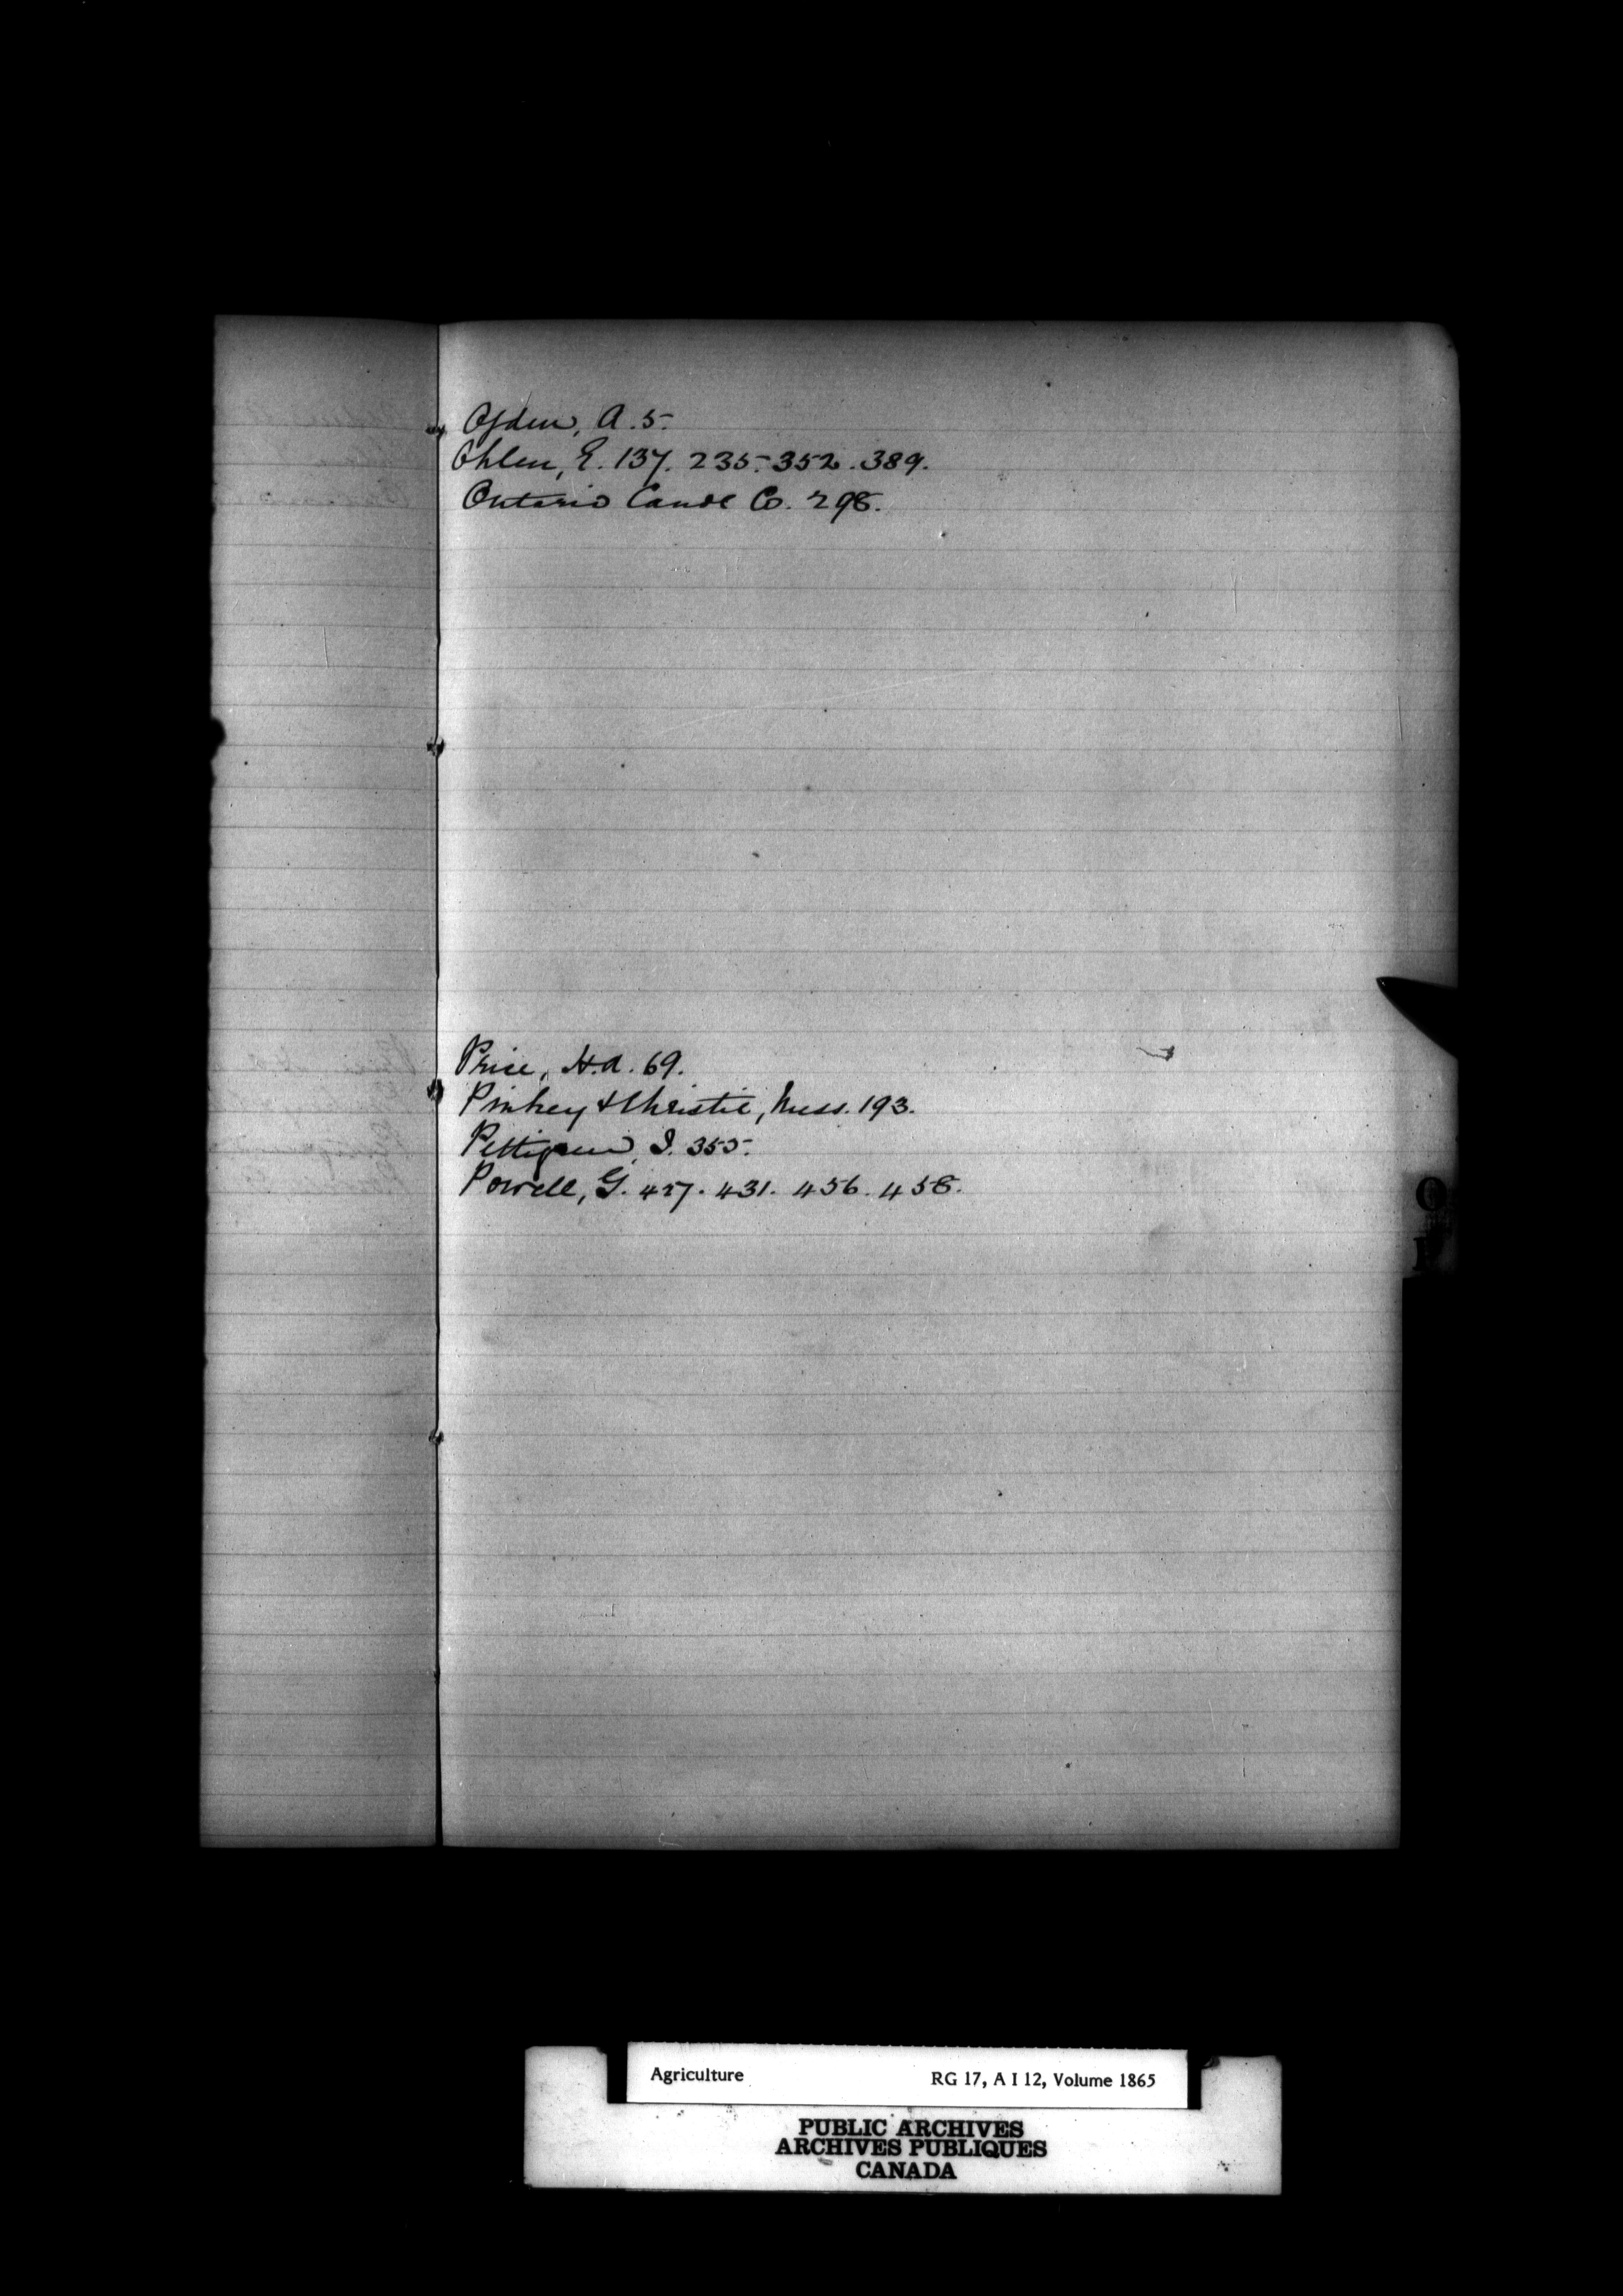 Ogden, A. 5.
Ohlen, E. 137. 235. 352. 389.
Ontario Canoe Co. 298.
Price, H.A. 69.
Pinkey & Christie, Mess. 193.
Pettigrew, J. 355.
Powell, G. 427. 431. 456. 458.
O
P
Agriculture RG 17, A I 12, Volume 1865
PUBLIC ARCHIVES
ARCHIVES PUBLIQUES
CANADA